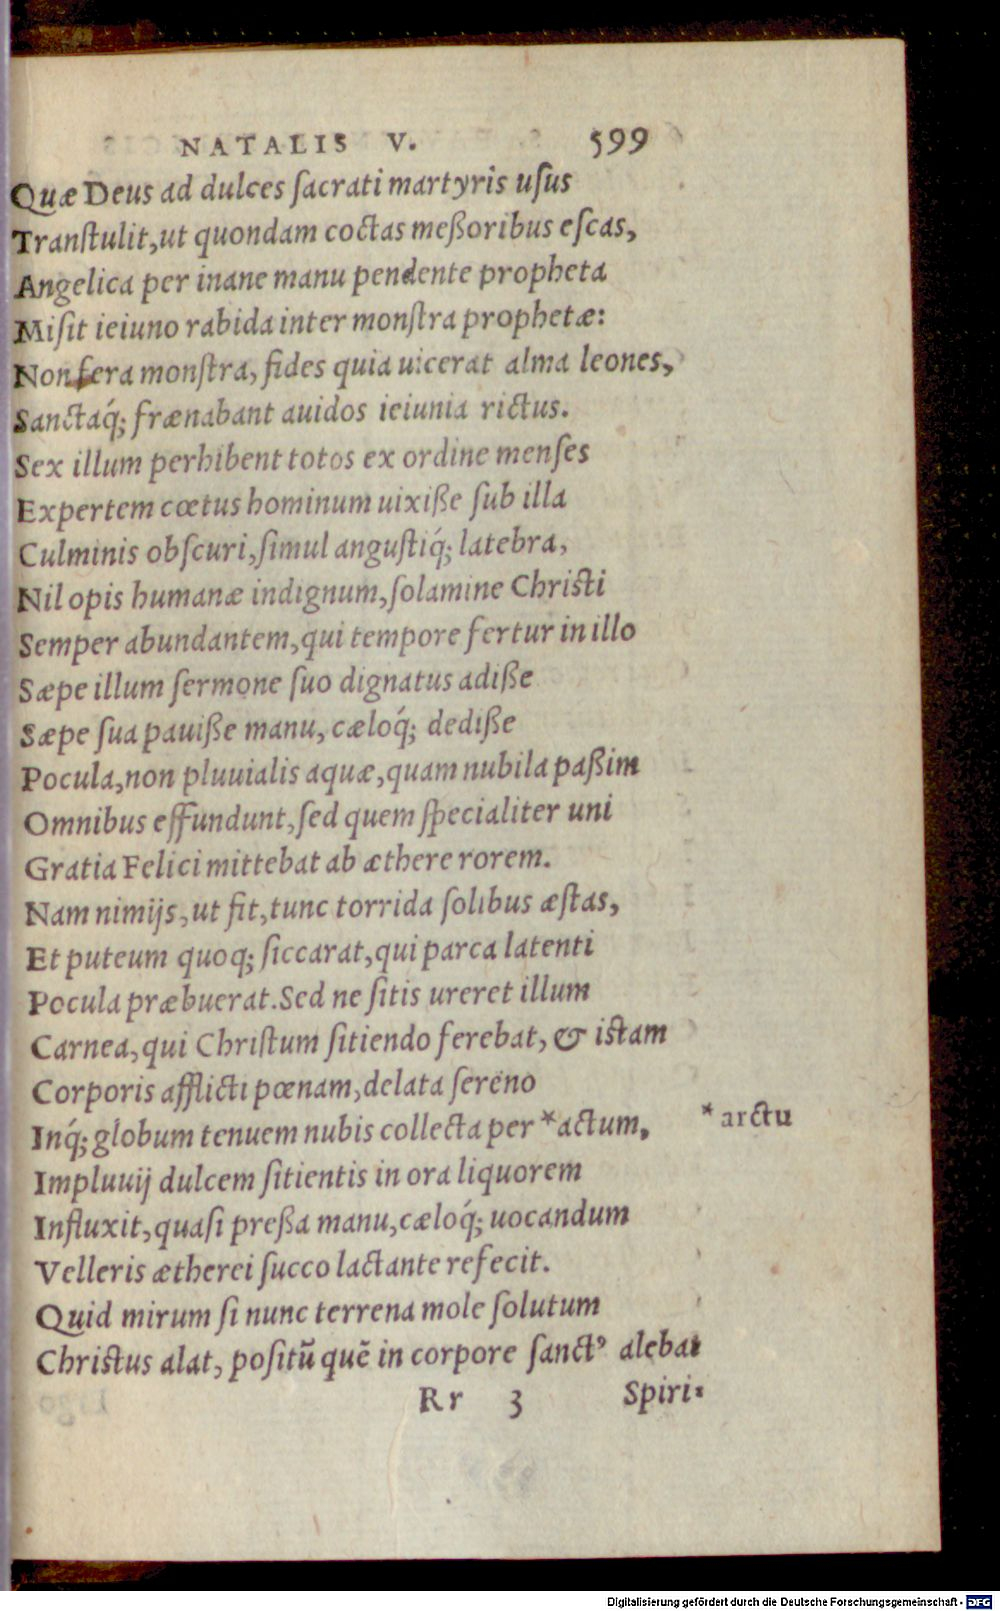 NATALIS V. 599
Quæ Deus ad dulces ſacrati martyris uſus
Tranſtulit, ut quondam coctas meßoribus eſcas,
Angelica per inane manu pendente propheta
Miſit ieiuno rabida inter monſtra prophetæ:
Non fera monſtra, fides quia uicerat alma leones,
Sanctaq́; frænabant auidos ieiunia rictus.
Sex illum perhibent totos ex ordine menſes
Expertem cœtus hominum uixiße ſub illa
Culminis obſcuri, ſimul anguſtiq́; latebra,
Nil opis humanæ indignum, ſolamine Chriſti
Semper abundantem, qui tempore fertur in illo
Sæpe illum ſermone ſuo dignatus adiße
Sæpe ſua pauiße manu, cæloq́; dediße
Pocula, non pluuialis aquæ, quam nubila paßim
Omnibus effundunt, ſed quem ſpecialiter uni
Gratia Felici mittebat ab æthere rorem.
Nam nimijs, ut fit, tunc torrida ſolibus æſtas,
Et puteum quoq; ſiccarat, qui parca latenti
Pocula præbuerat. Sed ne ſitis ureret illum
Carnea, qui Chriſtum ſitiendo ferebat, & iſtam
Corporis afflicti pœnam, delata ſereno
Inq́; globum tenuem nubis collecta per *actum, * arctu
Impluuij dulcem ſitientis in ora liquorem
Influxit, quaſi preßa manu, cæloq́; uocandum
Velleris ætherei ſucco lactante refecit.
Quid mirum ſi nunc terrena mole ſolutum
Chriſtus alat, poſitũ quẽ in corpore ſanctꝰ alebat
Rr 3 Spiri-
Digitalisierung gefördert durch die Deutsche Forschungsgemeinschaft - DFG